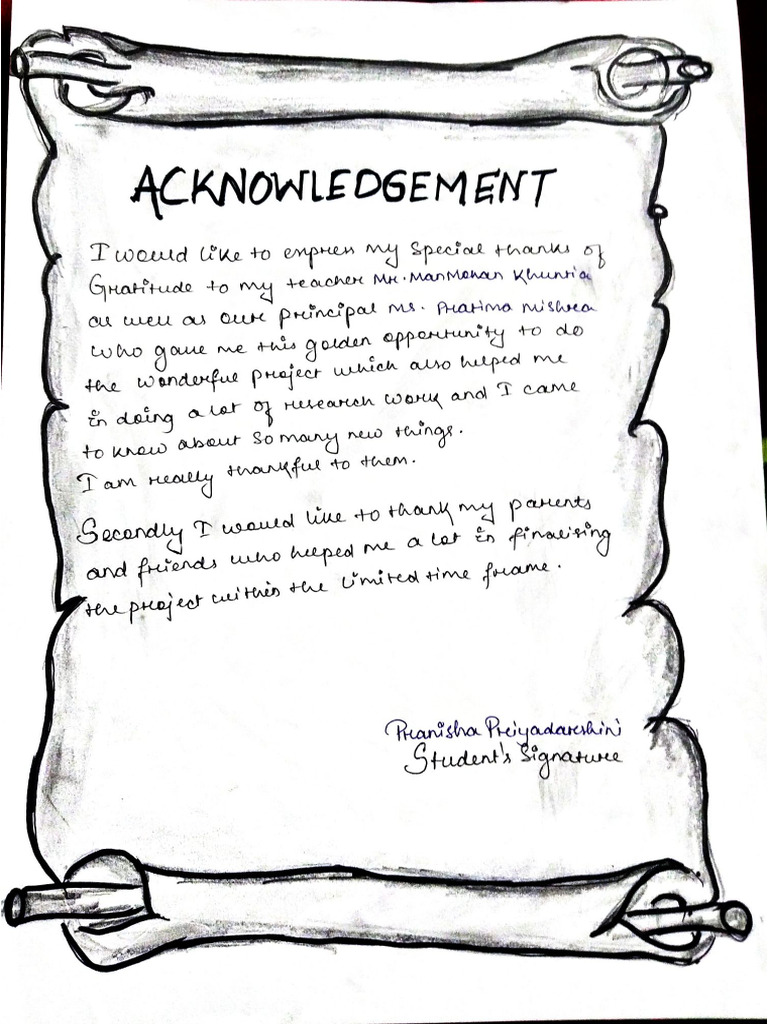 ACKNOWLEDGEMENT
I would like to express my special thanks of
Gratitude to my teacher Mr. Manmohan Khuntia
as well as our principal Ms. Pratima Mishra
who gave me this golden opportunity to do
the wonderful project which also helped me
in doing a lot of research work and I came
to know about so many new things.
I am really thankful to them.
Secondly I would like to thank my parents
and friends who helped me a lot in finalising
the project within the limited time frame.
Pranisha Priyadarshini
Student's Signature